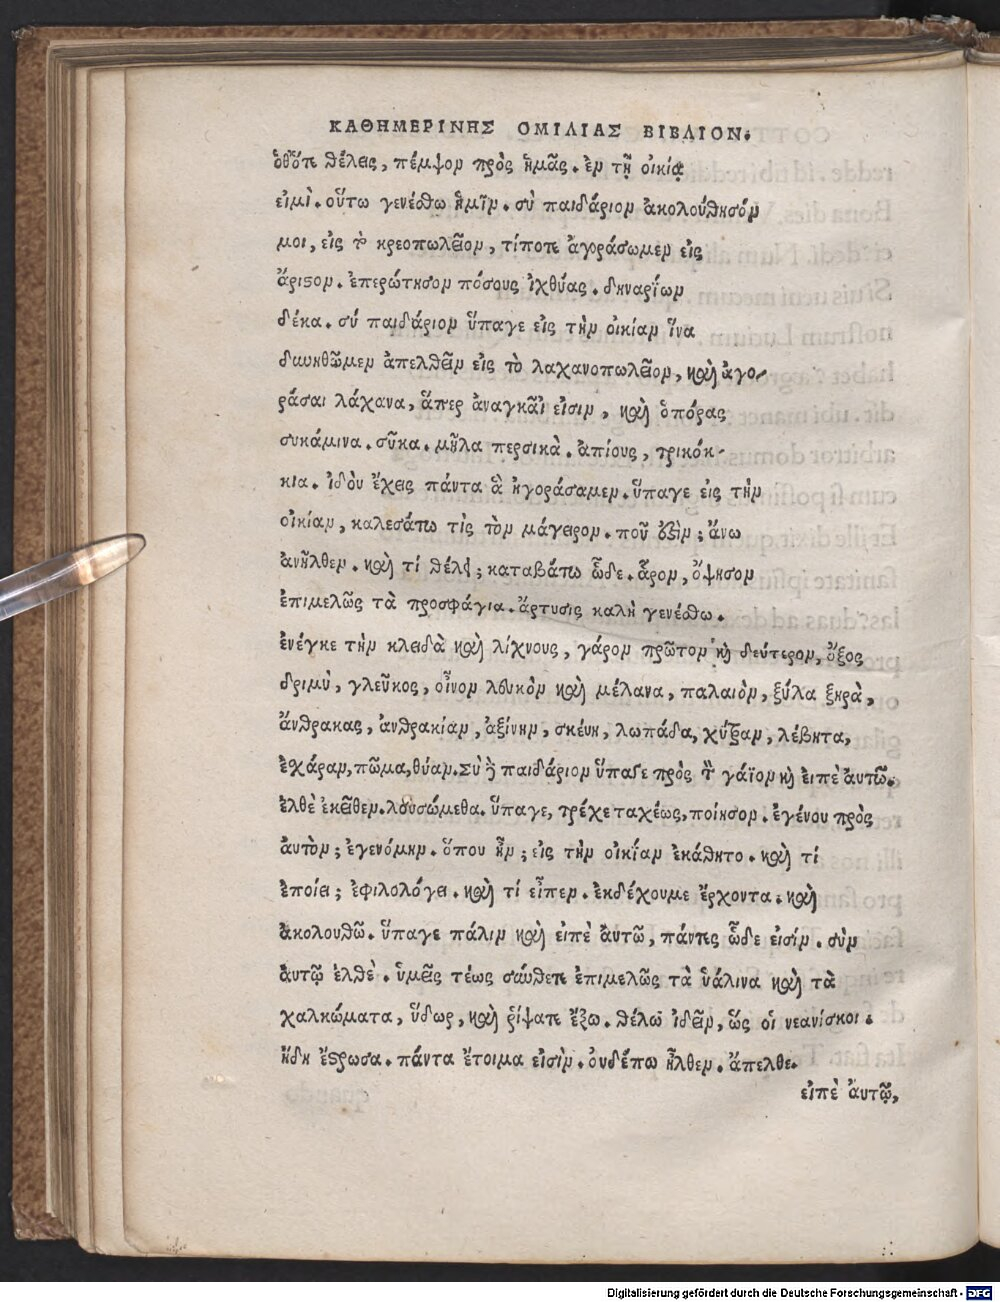 ΚΑΘΗΜΕΡΙΝΗΣ ΟΜΙΛΙΑΣ ΒΙΒΛΙΟΝ.
θέλεις, πέμψον πρὸς ἡμᾶς. ἐν τῇ οἰκίᾳ
εἰμὶ. οὕτω γενέσθω ἡμῖν. σὺ παιδάριον ἀκολούθησόν
μοι, εἰς τὸ κρεοπωλεῖον, τίποτε ἀγοράσωμεν εἰς
ἄριστον. ἐπερώτησον πόσους ἰχθύας. δηναρίων
δέκα. σύ παιδάριον ὕπαγε εἰς τὴν οἰκίαν ἵνα
δυνηθῶμεν ἀπελθεῖν εἰς τὸ λαχανοπωλεῖον, καὶ ἀγο-
ράσαι λάχανα, ἅπερ ἀναγκαῖ εἰσιν, καὶ ὀπόρας
συκάμινα. σῦκα. μῆλα περσικὰ. ἀπίους, τρικόκ-
κια. ἰδοὺ ἔχεις πάντα ἃ ἠγοράσαμεν. ὕπαγε εἰς τὴν
οἰκίαν, καλεσάτω τὶς τὸν μάγειρον. ποῦ ἐστὶν; ἄνω
ἀνῆλθεν. καὶ τί θέλει; καταβάτω ὧδε. ἆρον, ὄψησον
ἐπιμελῶς τὰ προσφάγια. ἄρτυσις καλὴ γενέσθω.
ἐνέγκε τὴν κλειδὰ καὶ λίχνους, γάρον πρῶτον καὶ δεύτερον, ὄξος
δριμὺ, γλεῦκος, οἶνον λευκὸν καὶ μέλανα, παλαιὸν, ξύλα ξηρὰ,
ἄνθρακας, ἀνθρακίαν, ἀξίνην, σκέυη, λωπάδα, χύτραν, λέβητα,
ἐχάραν, πῶμα, θύαν. Σὺ παιδάριον ὕπαγε πρὸς τὸν γάϊον καὶ εἰπὲ ἀυτῶ.
ἐλθὲ ἐκεῖθεν. λουσώμεθα. ὕπαγε, τρέχε ταχέως, ποίησον. ἐγένου πρὸς
ἀυτὸν; ἐγενόμην. ὅπου ἦν; εἰς τὴν οἰκίαν ἐκάθητο. καὶ τί
ἐποίει; ἐφιλολόγει. καὶ τί εἶπεν. ἐκδέχουμε ἔρχοντα. καὶ
ἀκολουθῶ. ὕπαγε πάλιν καὶ εἰπὲ ἀυτῶ, πάντες ὧδε εἰσίν. σὺν
ἀυτῷ ἐλθὲ. ὑμεῖς τέως ἐπιμελῶς τὰ ὑάλινα καὶ τὰ
χαλκώματα, ὕδωρ, καὶ ῥίψατε ἔξω. θέλω ἰδεῖν, ὥς οἱ νεανίσκοι.
ἤδη ἔστρωσα. πάντα ἔτοιμα εἰσὶν. ὀυδέπω ἦλθεν. ἄπελθε.
εἰπὲ ἀυτῷ,
Digitalisierung gefördert durch die Deutsche Forschungsgemeinschaft - DFG